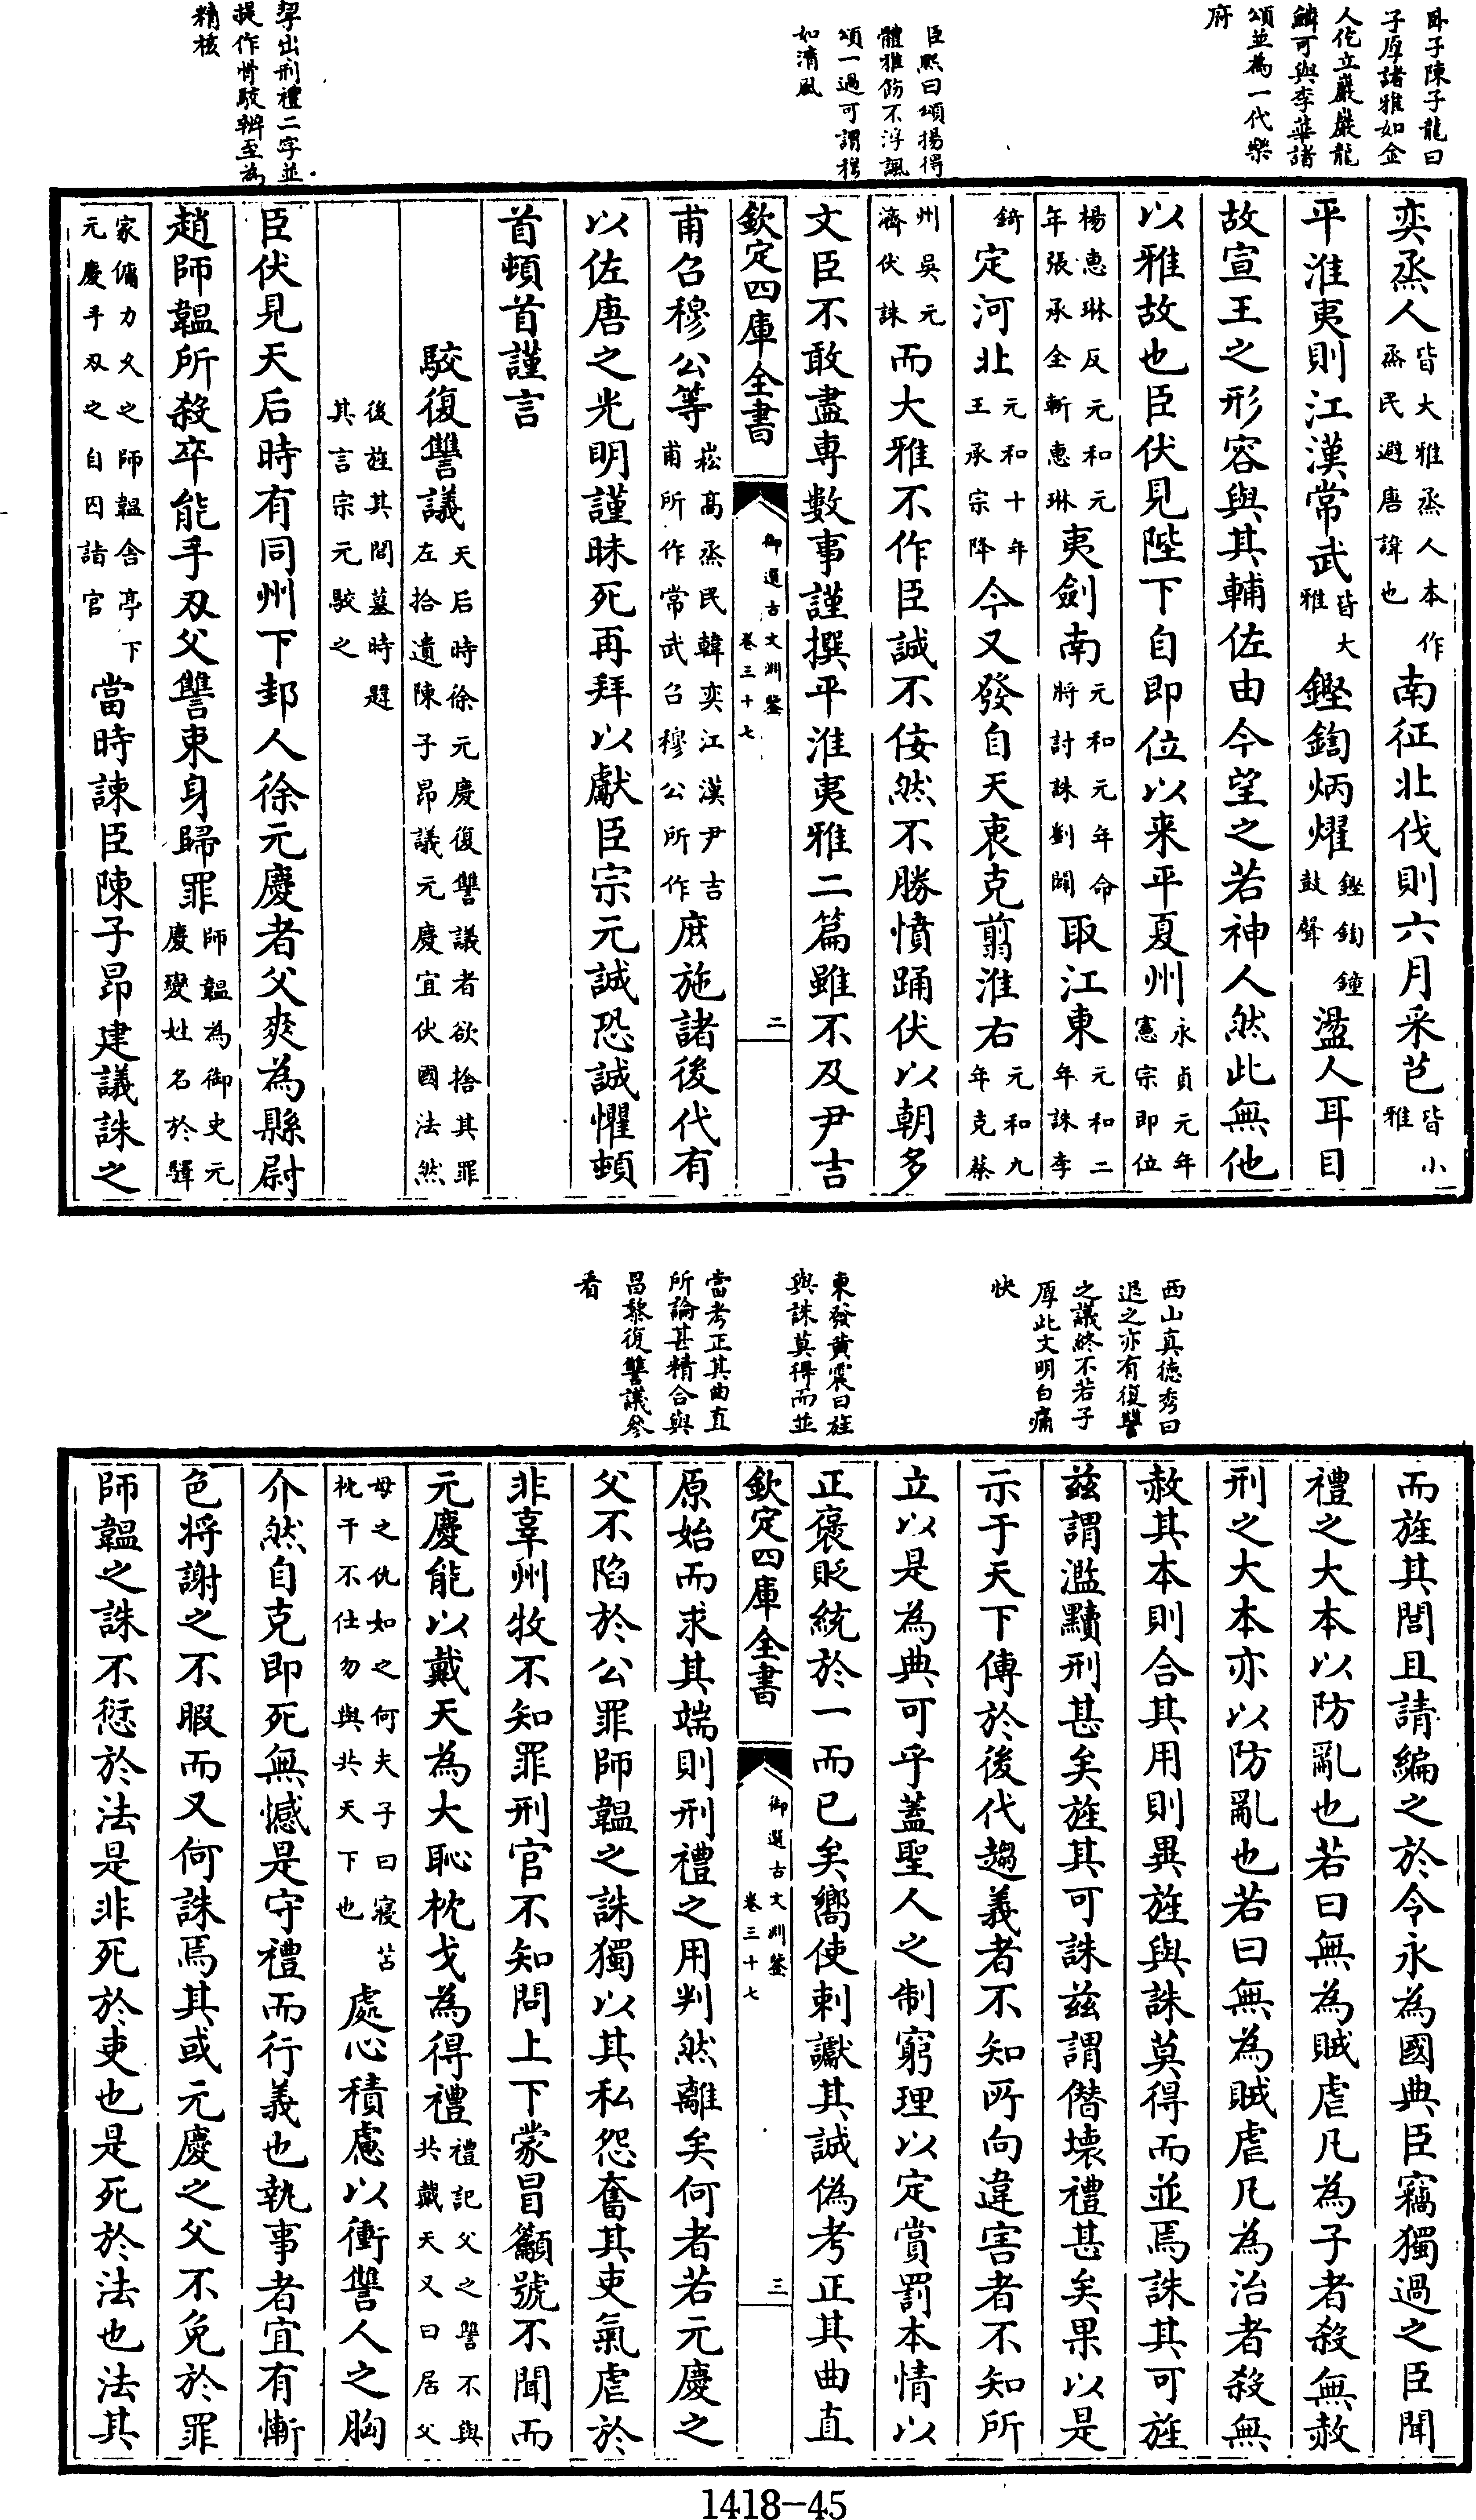 臣子陳子龍曰
子厚諸雅如金
人仡立巖巖龍
鱗可與李華諸
頌並為一代樂
府
臣熙曰頌揚得
體雅飭不浮諷
頌一過可謂穆
如清風
挈出刑禮二字並
提作骨駮辨至為
精核
奕烝人皆大雅烝人本作烝民避唐諱也南征北伐則六月采芑皆小雅
平淮夷則江漢常武皆大雅鏗鍧炳燿鏗鍧鐘鼓聲盪人耳目
故宣王之形容與其輔佐由今望之若神人然此無他
以雅故也臣伏見陛下自即位以来平夏州永貞元年憲宗即位
楊惠琳反元和元年張承全斬惠琳夷劍南元和元年命將討誅劉闢取江東元和二年誅李
錡定河北元和十年王承宗降今又發自天衷克翦淮右元和九年克蔡
州吳元濟伏誅而大雅不作臣誠不佞然不勝憤踊伏以朝多
文臣不敢盡専數事謹撰平淮夷雅二篇雖不及尹吉
欽定四庫全書
御選古文淵鑒
卷三十七
二
甫召穆公等崧高烝民韓奕江漢尹吉甫所作常武召穆公所作庶施諸後代有
以佐唐之光明謹昧死再拜以獻臣宗元誠恐誠懼頓
首頓首謹言
駮復讐議天后時徐元慶復讐議者欲捨其罪左拾遺陳子昂議元慶宜伏國法然
後旌其閭墓時韙其言宗元駮之
臣伏見天后時有同州下邽人徐元慶者父爽為縣尉
趙師韞所殺卒能手刄父讐束身歸罪師韞為御史元慶變姓名於驛
家傭力久之師韞舍亭下元慶手刄之自囚詣官當時諫臣陳子昂建議誅之
西山真德秀曰
退之亦有復讐
之議終不若子
厚此文明白痛
快
東發黄震曰旌
與誅莫得而並
當考正其曲直
所論甚精合與
昌黎復讐議參
看
而旌其閭且請編之於令永為國典臣竊獨過之臣聞
禮之大本以防亂也若曰無為賊虐凡為子者殺無赦
刑之大本亦以防亂也若曰無為賊虐凡為治者殺無
赦其本則合其用則異旌與誅莫得而並焉誅其可旌
茲謂濫黷刑甚矣旌其可誅茲謂僭壞禮甚矣果以是
示于天下傳於後代趨義者不知所向違害者不知所
立以是為典可乎蓋聖人之制窮理以定賞罰本情以
正褒貶統於一而已矣嚮使刺讞其誠偽考正其曲直
欽定四庫全書
御選古文淵鑒
卷三十七
三
原始而求其端則刑禮之用判然離矣何者若元慶之
父不陷於公罪師韞之誅獨以其私怨奮其吏氣虐於
非辜州牧不知罪刑官不知問上下蒙冒籲號不聞而
元慶能以戴天為大恥枕戈為得禮禮記父之讐不與共戴天又曰居父
母之仇如之何夫子曰寢苫枕干不仕勿與共天下也處心積慮以衝讐人之胸
介然自克即死無憾是守禮而行義也執事者宜有慚
色將謝之不暇而又何誅焉其或元慶之父不免於罪
師韞之誅不愆於法是非死於吏也是死於法也法其
1418-45